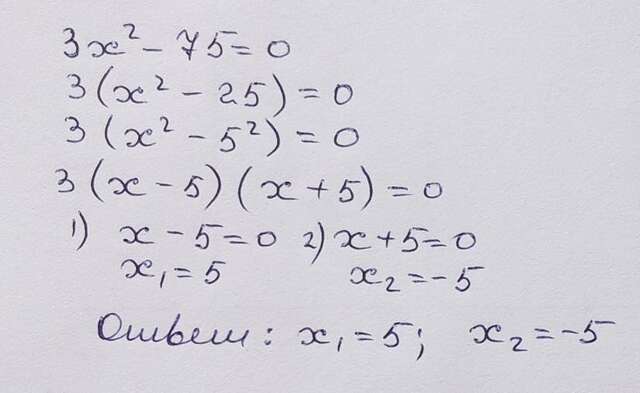 3x² − 75 = 0
3(x² − 25) = 0
3(x² − 5²) = 0
3(x − 5)(x + 5) = 0
1) x − 5 = 0 2) x + 5 = 0
x₁ = 5 x₂ = −5
Ответ: x₁ = 5; x₂ = −5